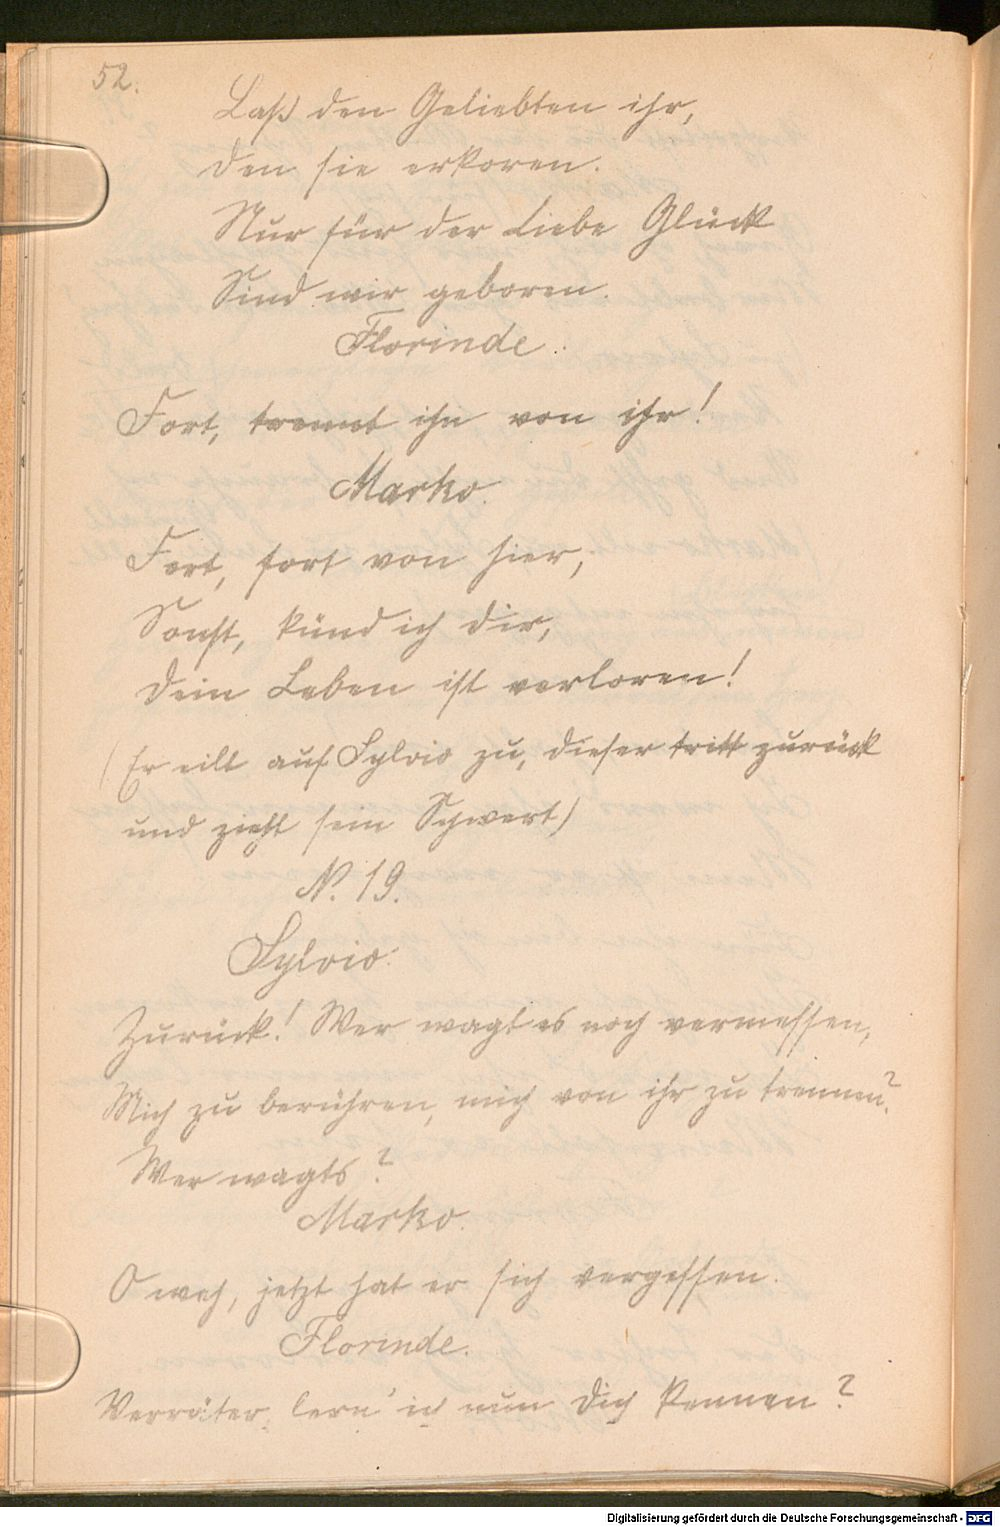 52.
Laß den Geliebten ihr,
den sie erkoren.
Nur für der Liebe Glück
Sind wir geboren.
Florinde.
Fort, trennt ihn von ihr!
Marko.
Fort, fort von hier,
Sonst, künd ich dir,
Dein Leben ist verloren!
(Er eilt auf Sylvio zu, dieser tritt zurück
und zieht sein Schwert)
N. 19.
Sylvio.
Zurück! Wer wagt es noch vermessen,
Mich zu berühren, mich von ihr zu trennen?
Wer wagts?
Marko.
O weh, jetzt hat er sich vergessen.
Florinde.
Verräter, lern' ich nun Dich kennen?
Digitalisierung gefördert durch die Deutsche Forschungsgemeinschaft - DFG